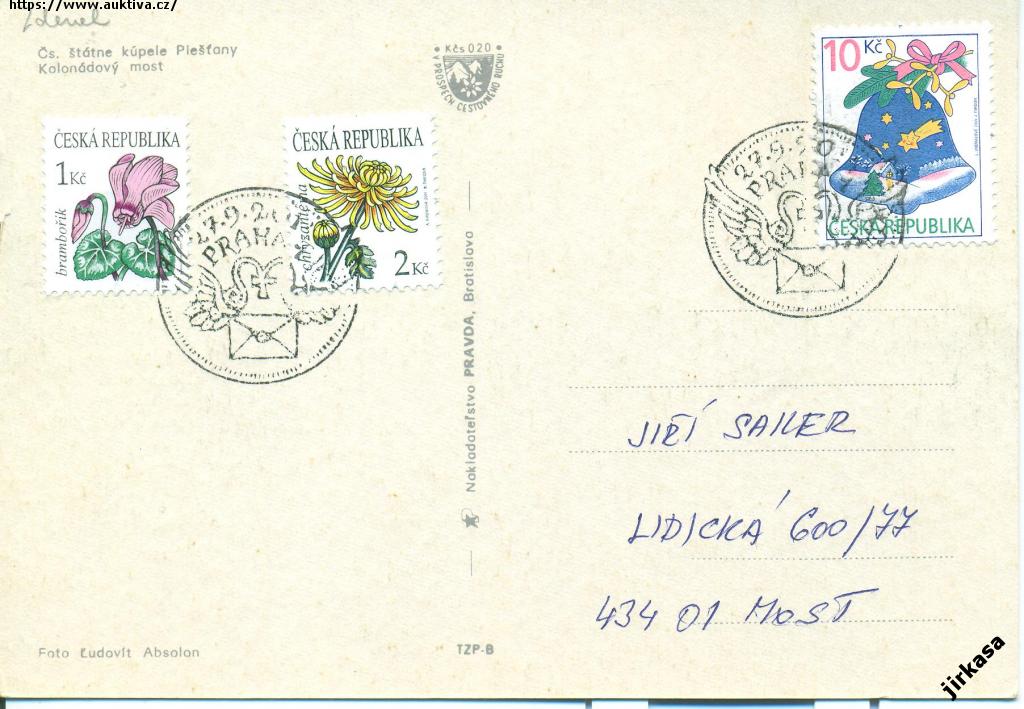 https://www.auktiva.cz/
Zdeněk
Čs. štátne kúpele Piešťany
Kolonádový most
Kčs 020
V PROSPECH CESTOVNÉHO RUCHU
ČESKÁ REPUBLIKA
1 Kč
brambořík
ČESKÁ REPUBLIKA
chryzantéma
2 Kč
27.9.20
PRAHA
10 Kč
ČESKÁ REPUBLIKA
27.9.20
PRAHA
Nakladateľstvo PRAVDA, Bratislava
JIŘÍ SAILER
LIDICKÁ 600/77
434 01 MOST
Foto Ľudovít Absolon
TZP-B
jirkasa